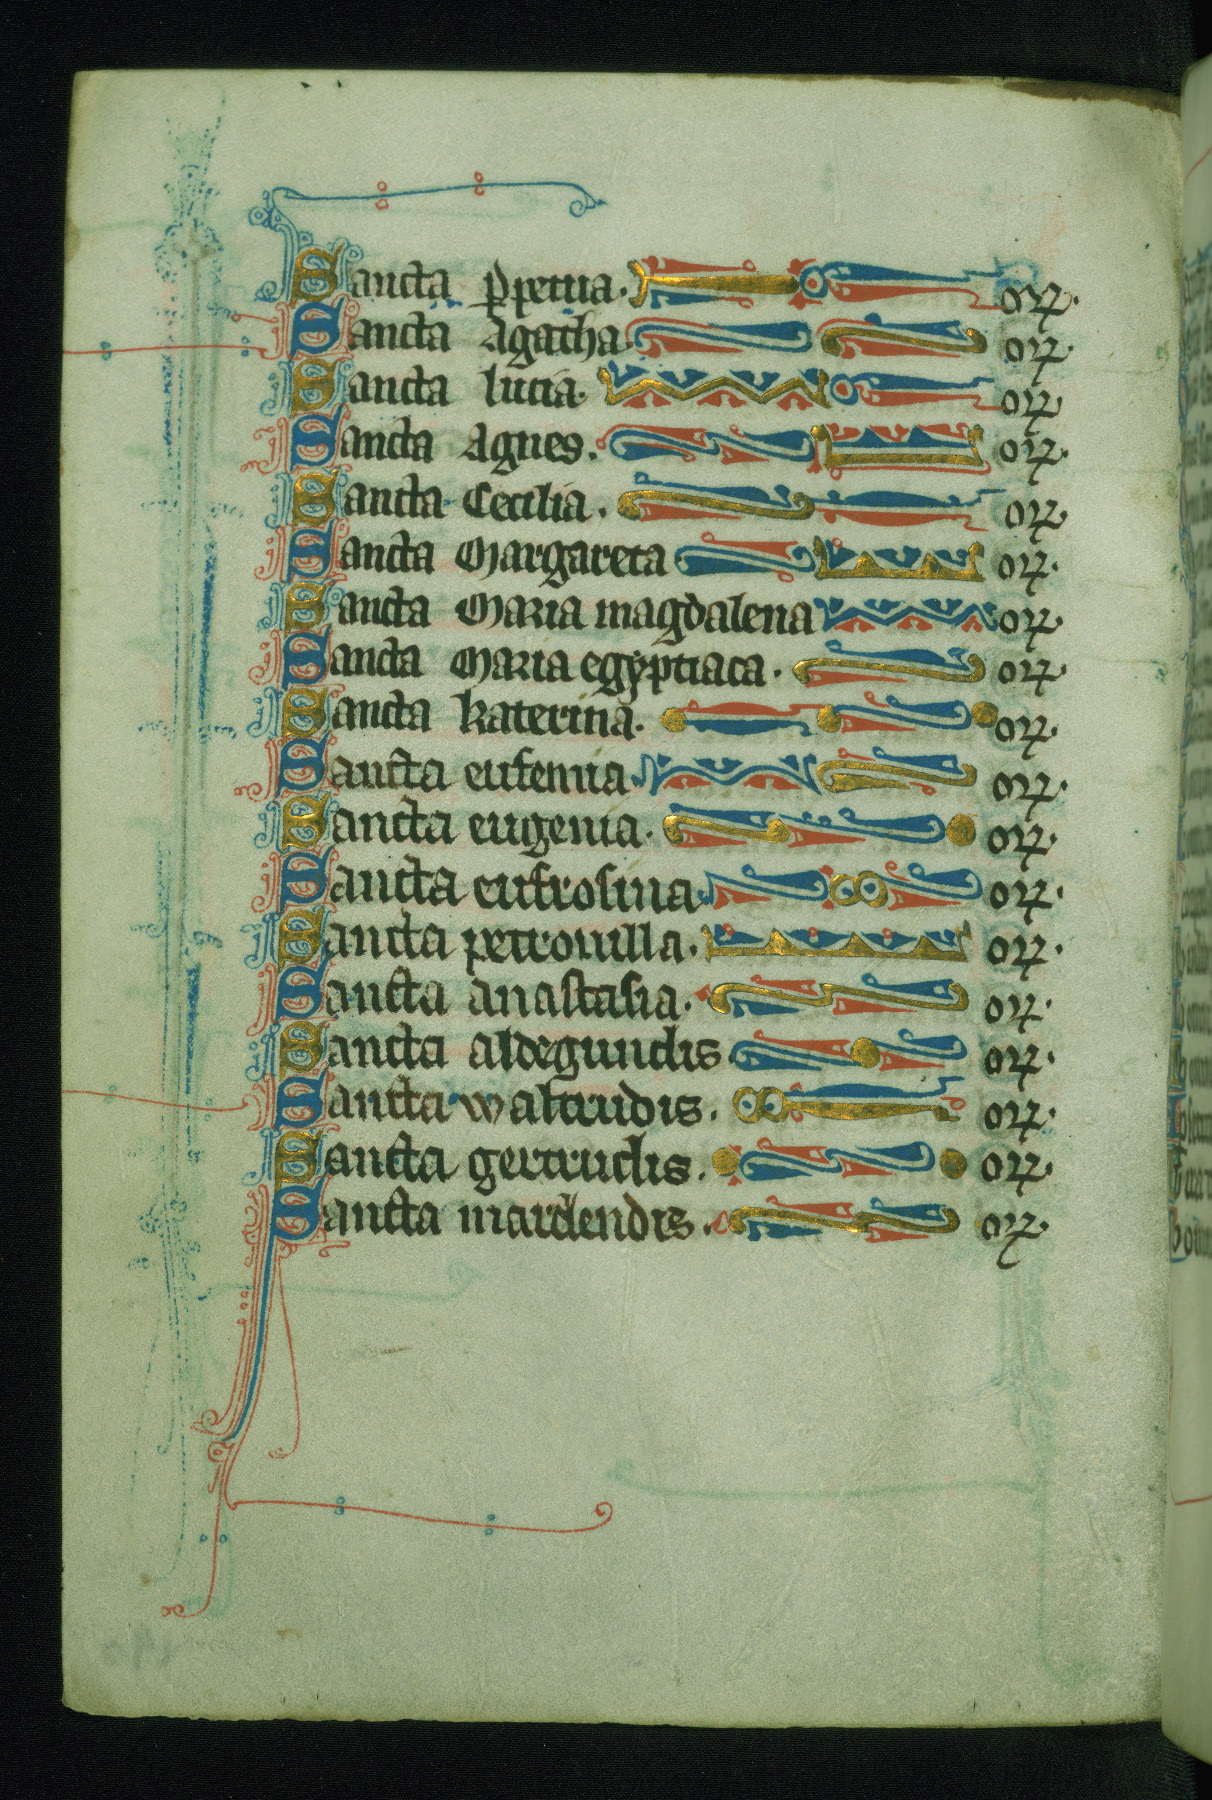 Sancta ꝑpetua. or̄.
Sancta Agatha or̄.
Sancta lucia. or̄.
Sancta Agnes. or̄.
Sancta Cecilia. or̄.
Sancta Margareta or̄.
Sancta Maria magdalena or̄.
Sancta Maria egyptiaca. or̄.
Sancta katerina. or̄.
Sancta eufemia. or̄.
Sancta eugenia. or̄.
Sancta eufrosina or̄.
Sancta petronilla. or̄.
Sancta anastasia. or̄.
Sancta aldegundis or̄.
Sancta waltrudis. or̄.
Sancta gertrudis. or̄.
Sancta or̄.